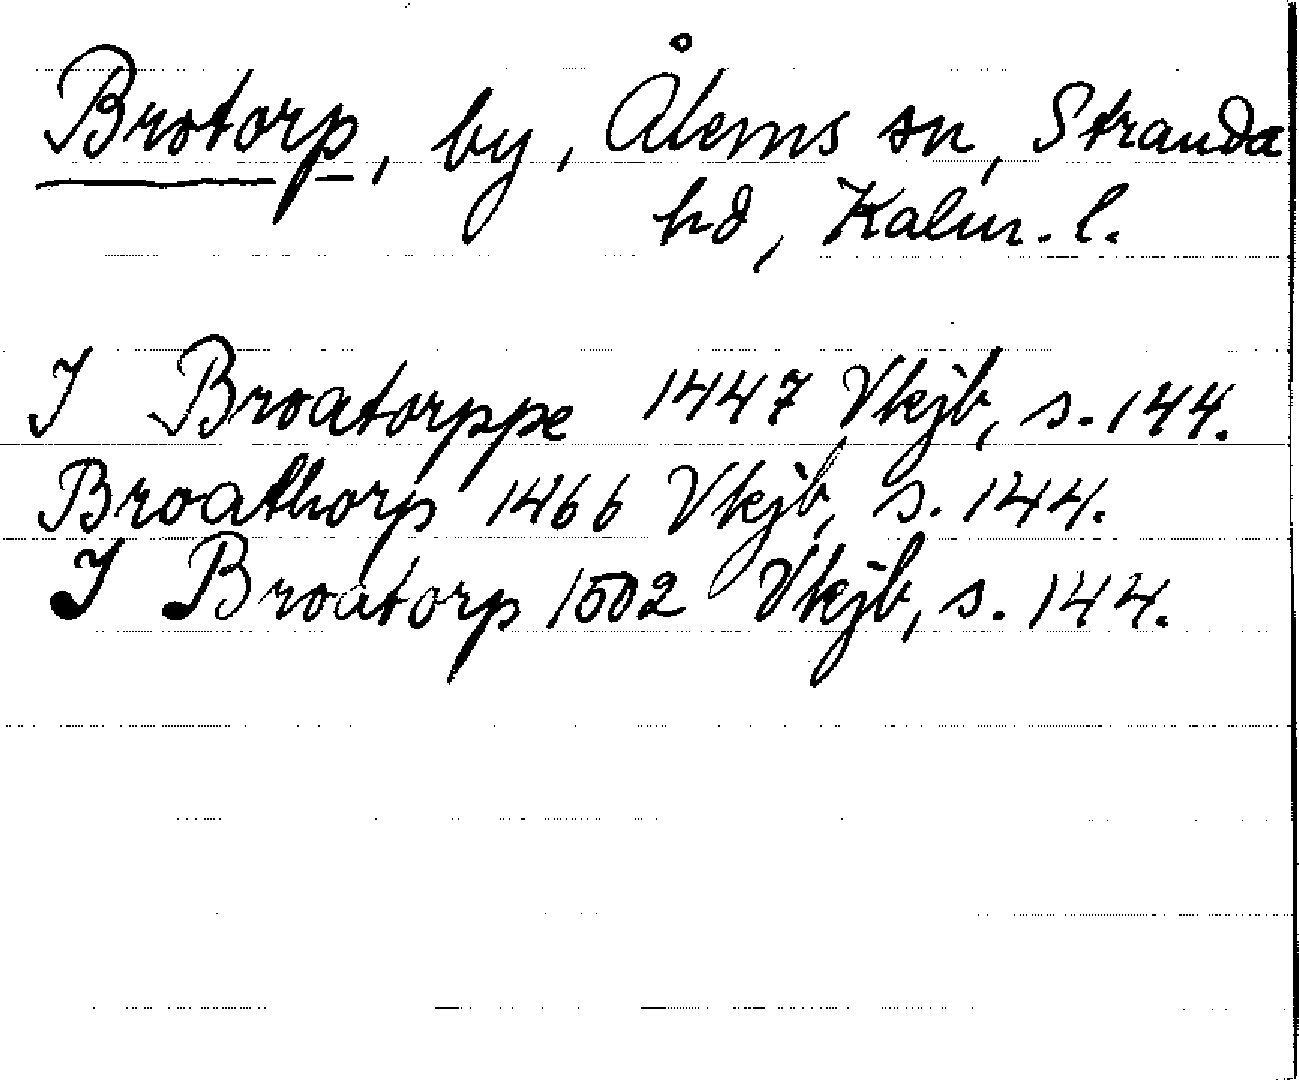 Brotorp, by, Ålems sn, Stranda
hd, Kalm. l.
I Broatorppe 1447 Vkjb, s. 144.
Broathorp 1466 Vkjb, s. 144.
I Broatorp 1502 Vkjb, s. 144.